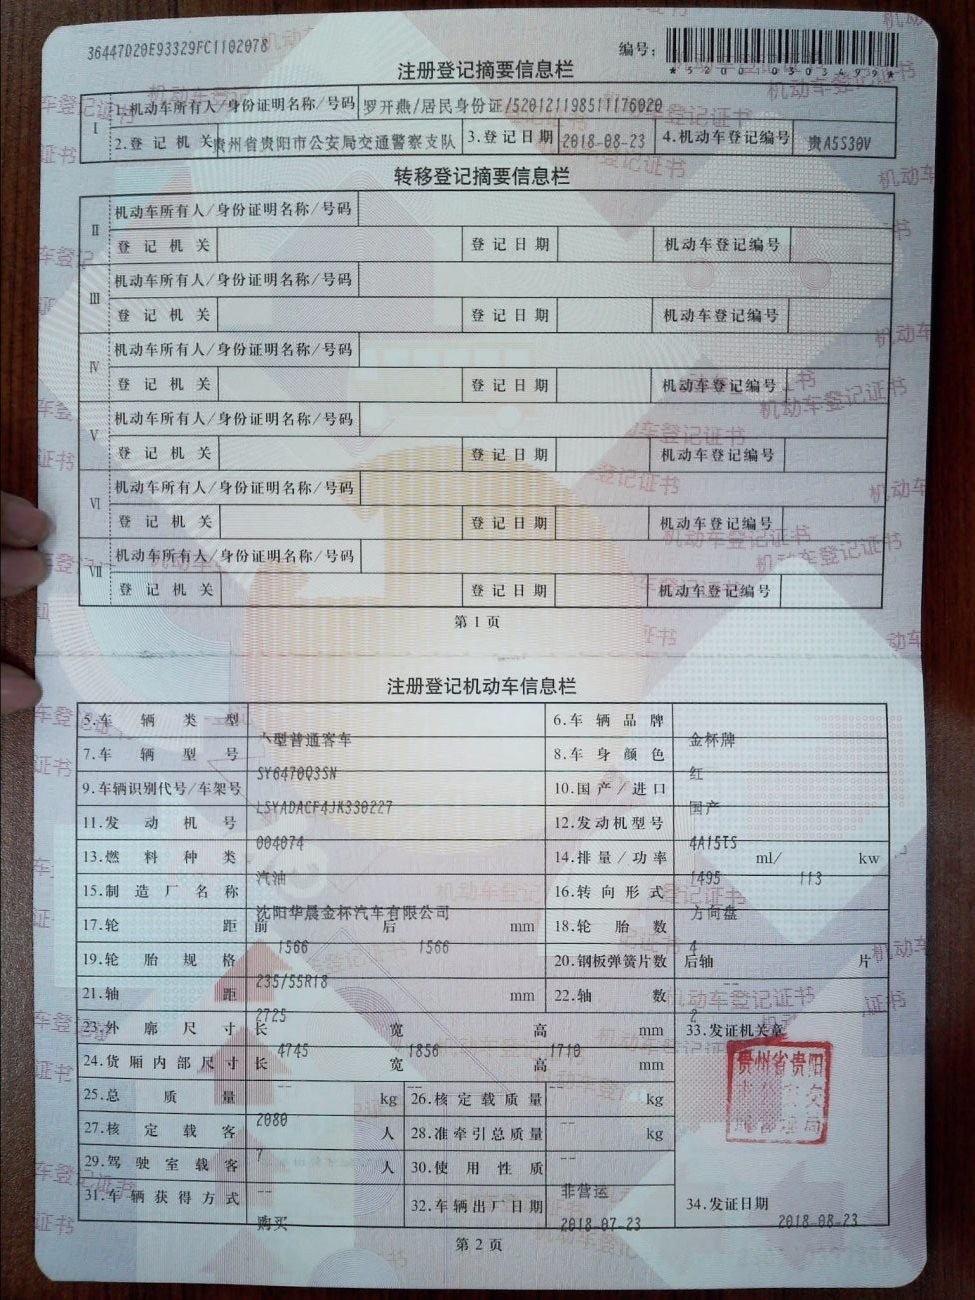 36447D20E93329FC1102078
编号:
注册登记摘要信息栏
I
1.机动车所有人/身份证明名称/号码 罗开燕/居民身份证/520121198511176020
2.登记机关 贵州省贵阳市公安局交通警察支队 3.登记日期 2018-08-23 4.机动车登记编号 贵A5S30V
转移登记摘要信息栏
II
机动车所有人/身份证明名称/号码
登记机关 登记日期 机动车登记编号
III
机动车所有人/身份证明名称/号码
登记机关 登记日期 机动车登记编号
IV
机动车所有人/身份证明名称/号码
登记机关 登记日期 机动车登记编号
V
机动车所有人/身份证明名称/号码
登记机关 登记日期 机动车登记编号
VI
机动车所有人/身份证明名称/号码
登记机关 登记日期 机动车登记编号
VII
机动车所有人/身份证明名称/号码
登记机关 登记日期 机动车登记编号
第1页
注册登记机动车信息栏
5.车辆类型 型普通客车 6.车辆品牌 金杯牌
7.车辆型号 SY6470Q3SN 8.车身颜色 红
9.车辆识别代号/车架号 LSYADACF4JK330227 10.国产/进口 国产
11.发动机号 004074 12.发动机型号 4A15TS
13.燃料种类 汽油 14.排量/功率 1495 ml/ 113 kw
15.制造厂名称 沈阳华晨金杯汽车有限公司 16.转向形式 方向盘
17.轮距 前 1566 后 1566 mm 18.轮胎数 4
19.轮胎规格 235/55R18 20.钢板弹簧片数 后轴 -- 片
21.轴距 2725 mm 22.轴数 2
23.外廓尺寸 长 4745 宽 1856 高 1710 mm 33.发证机关章
24.货厢内部尺寸 长 -- 宽 -- 高 -- mm
贵州省贵阳
25.总质量 2080 kg 26.核定载质量 -- kg
27.核定载客 7 人 28.准牵引总质量 -- kg
29.驾驶室载客 -- 人 30.使用性质 非营运
31.车辆获得方式 购买 32.车辆出厂日期 2018-07-23 34.发证日期 2018-08-23
第2页